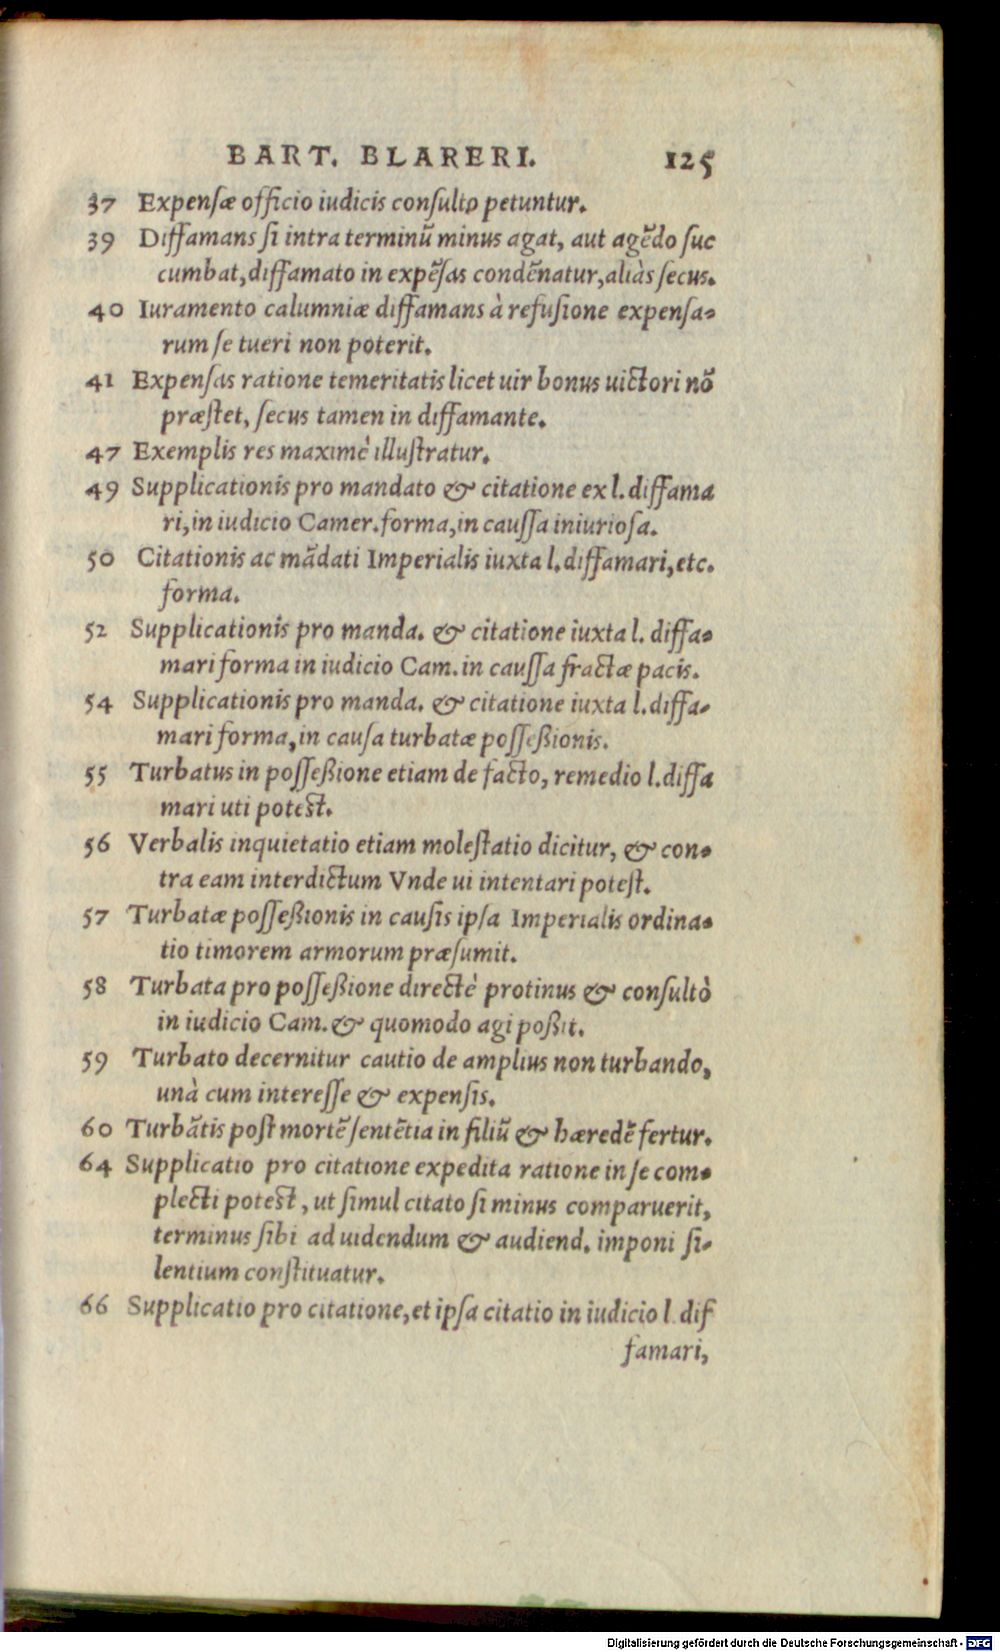 BART. BLARERI. 125
37 Expenſæ officio iudicis conſulto petuntur.
39 Diffamans ſi intra terminũ minus agat, aut agẽdo ſuc
cumbat, diffamato in expẽſas condẽnatur, aliàs ſecus.
40 Iuramento calumniæ diffamans à refuſione expenſa-
rum ſe tueri non poterit.
41 Expenſas ratione temeritatis licet uir bonus uictori nõ
præſtet, ſecus tamen in diffamante.
47 Exemplis res maximè illuſtratur.
49 Supplicationis pro mandato & citatione ex l. diffama
ri, in iudicio Camer. forma, in cauſſa iniurioſa.
50 Citationis ac mãdati Imperialis iuxta l. diffamari, etc.
forma.
52 Supplicationis pro manda. & citatione iuxta l. diffa-
mari forma in iudicio Cam. in cauſſa fractæ pacis.
54 Supplicationis pro manda. & citatione iuxta l. diffa-
mari forma, in cauſa turbatæ poſſeßionis.
55 Turbatus in poſſeßione etiam de facto, remedio l. diffa
mari uti poteſt.
56 Verbalis inquietatio etiam moleſtatio dicitur, & con-
tra eam interdictum Vnde ui intentari poteſt.
57 Turbatæ poſſeßionis in cauſis ipſa Imperialis ordina-
tio timorem armorum præſumit.
58 Turbata pro poſſeßione directè protinus & conſultò
in iudicio Cam. & quomodo agi poßit.
59 Turbato decernitur cautio de amplius non turbando,
unà cum intereſſe & expenſis.
60 Turbãtis poſt mortẽ ſentẽtia in filiũ & hæredẽ fertur.
64 Supplicatio pro citatione expedita ratione in ſe com-
plecti poteſt, ut ſimul citato ſi minus comparuerit,
terminus ſibi ad uidendum & audiend. imponi ſi-
lentium conſtituatur.
66 Supplicatio pro citatione, et ipſa citatio in iudicio l. dif
famari,
Digitalisierung gefördert durch die Deutsche Forschungsgemeinschaft - DFG